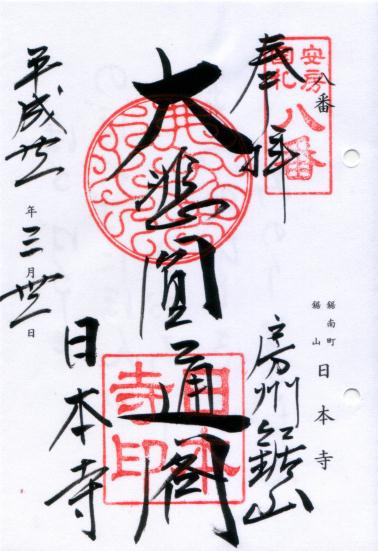 安房
国札
八番
八番
奉拝
鋸南町
鋸山
日本寺
房州鋸山
大悲
圓通閣
日本寺印
日本寺
平成廿三年三月廿三日